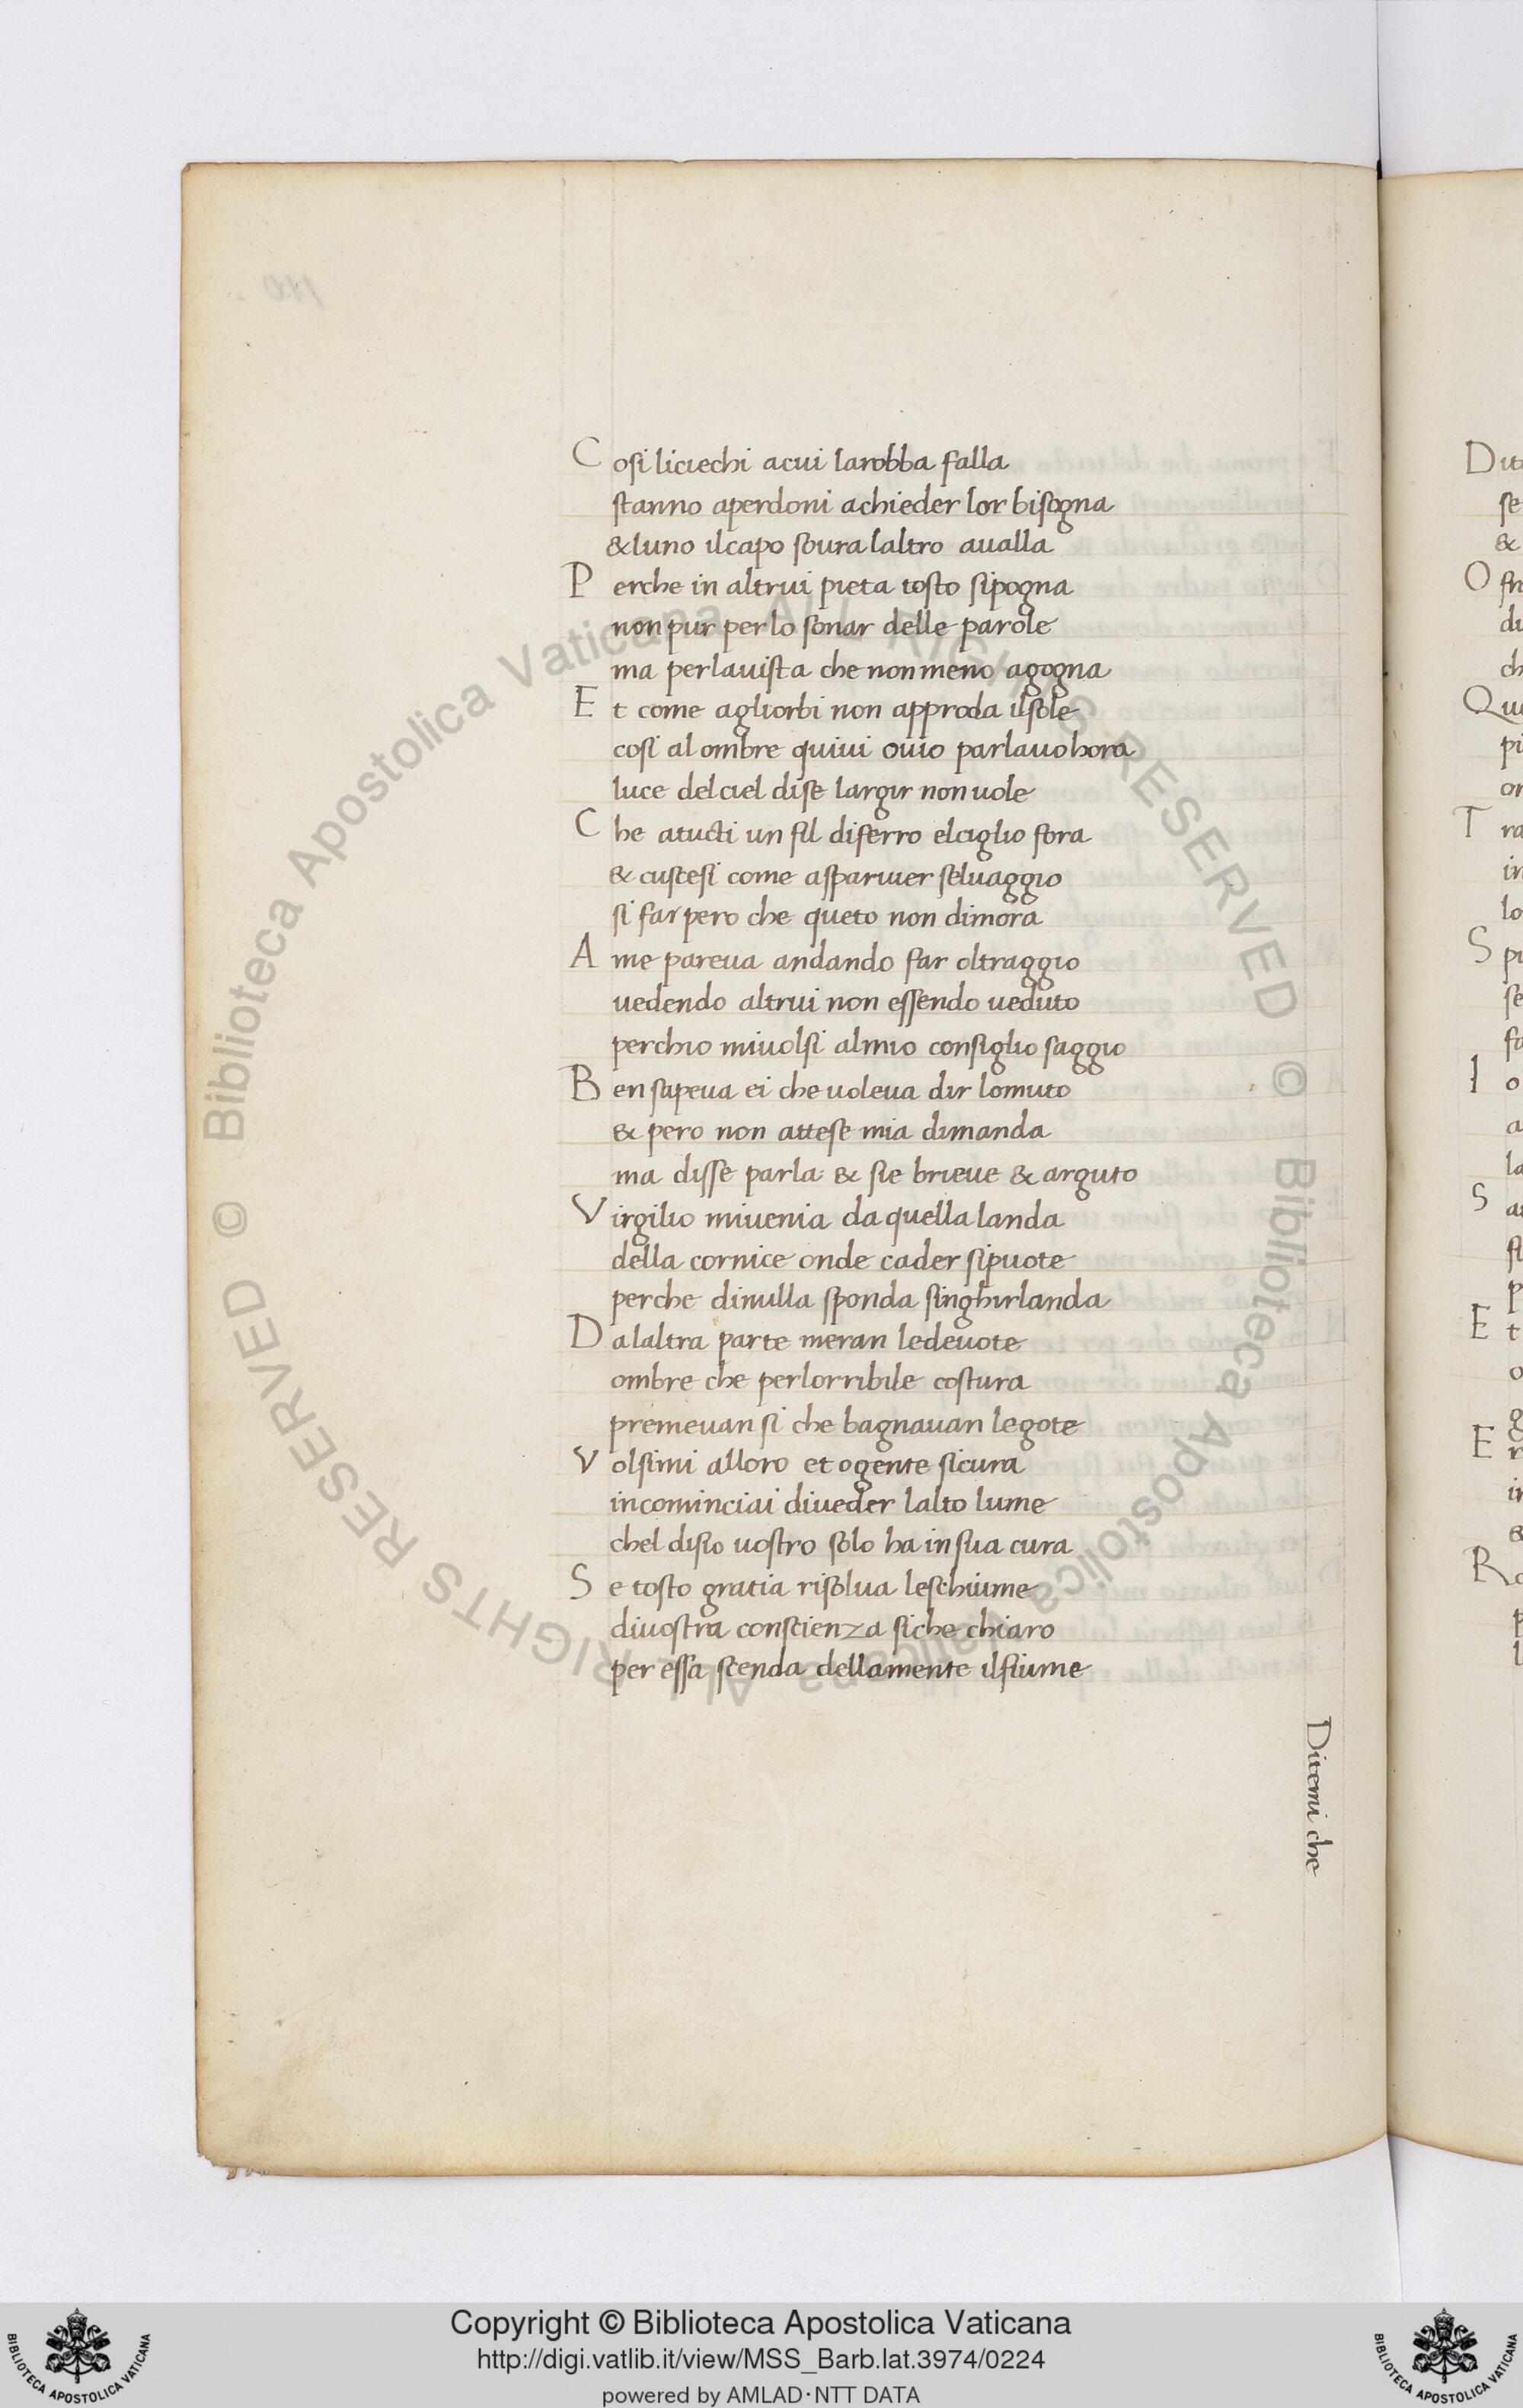 Cosi liciechi acui larobba falla
stanno aperdoni achieder lor bisogna
& luno ilcapo soura laltro aualla
Perche in altrui pieta tosto sipogna
non pur per lo sonar delle parole
ma perlauista che non meno agogna
Et come agliorbi non approda ilsole
cosi al ombre quiui ouio parlauohora
luce delciel dise largir non uole
Che atucti un fil diferro elciglio fora
& custesi come aspariuer seluaggio
si far pero che queto non dimora
Ame pareua andando far oltraggio
uedendo altrui non essendo ueduto
perchio miuolsi almio consiglio saggio
Ben sapeua ei che uoleua dir lomuto
& pero non attese mia dimanda
ma disse parla: & sie brieue & arguto
Virgilio miuenia da quella landa
della cornice onde cader sipuote
perche dinulla sponda singhirlanda
Dalaltra parte meran ledeuote
ombre che perlorribile costura
premeuan si che bagnauan legote
Volsimi alloro et ogente sicura
incominciai diueder lalto lume
chel disio uostro solo ha in sua cura
Se tosto gratia risolua leschiume
diuostra conscienza siche chiaro
per essa scenda dellamente ilfiume
Ditemi che
Dit
se
&
O
di
ch
Qu
pi
or
T ra
in
lo
S pi
se
fo
I o
a
la
S
p
E t
o
g
E
in
&
R
p
l
© Biblioteca Apostolica Vaticana ALL RIGHTS RESERVED © Biblioteca Apostolica Vaticana ALL RIGHTS RESERVED
BIBLIOTECA APOSTOLICA VATICANA
Copyright © Biblioteca Apostolica Vaticana
http://digi.vatlib.it/view/MSS_Barb.lat.3974/0224
powered by AMLAD·NTT DATA
BIBLIOTECA APOSTOLICA VATICANA